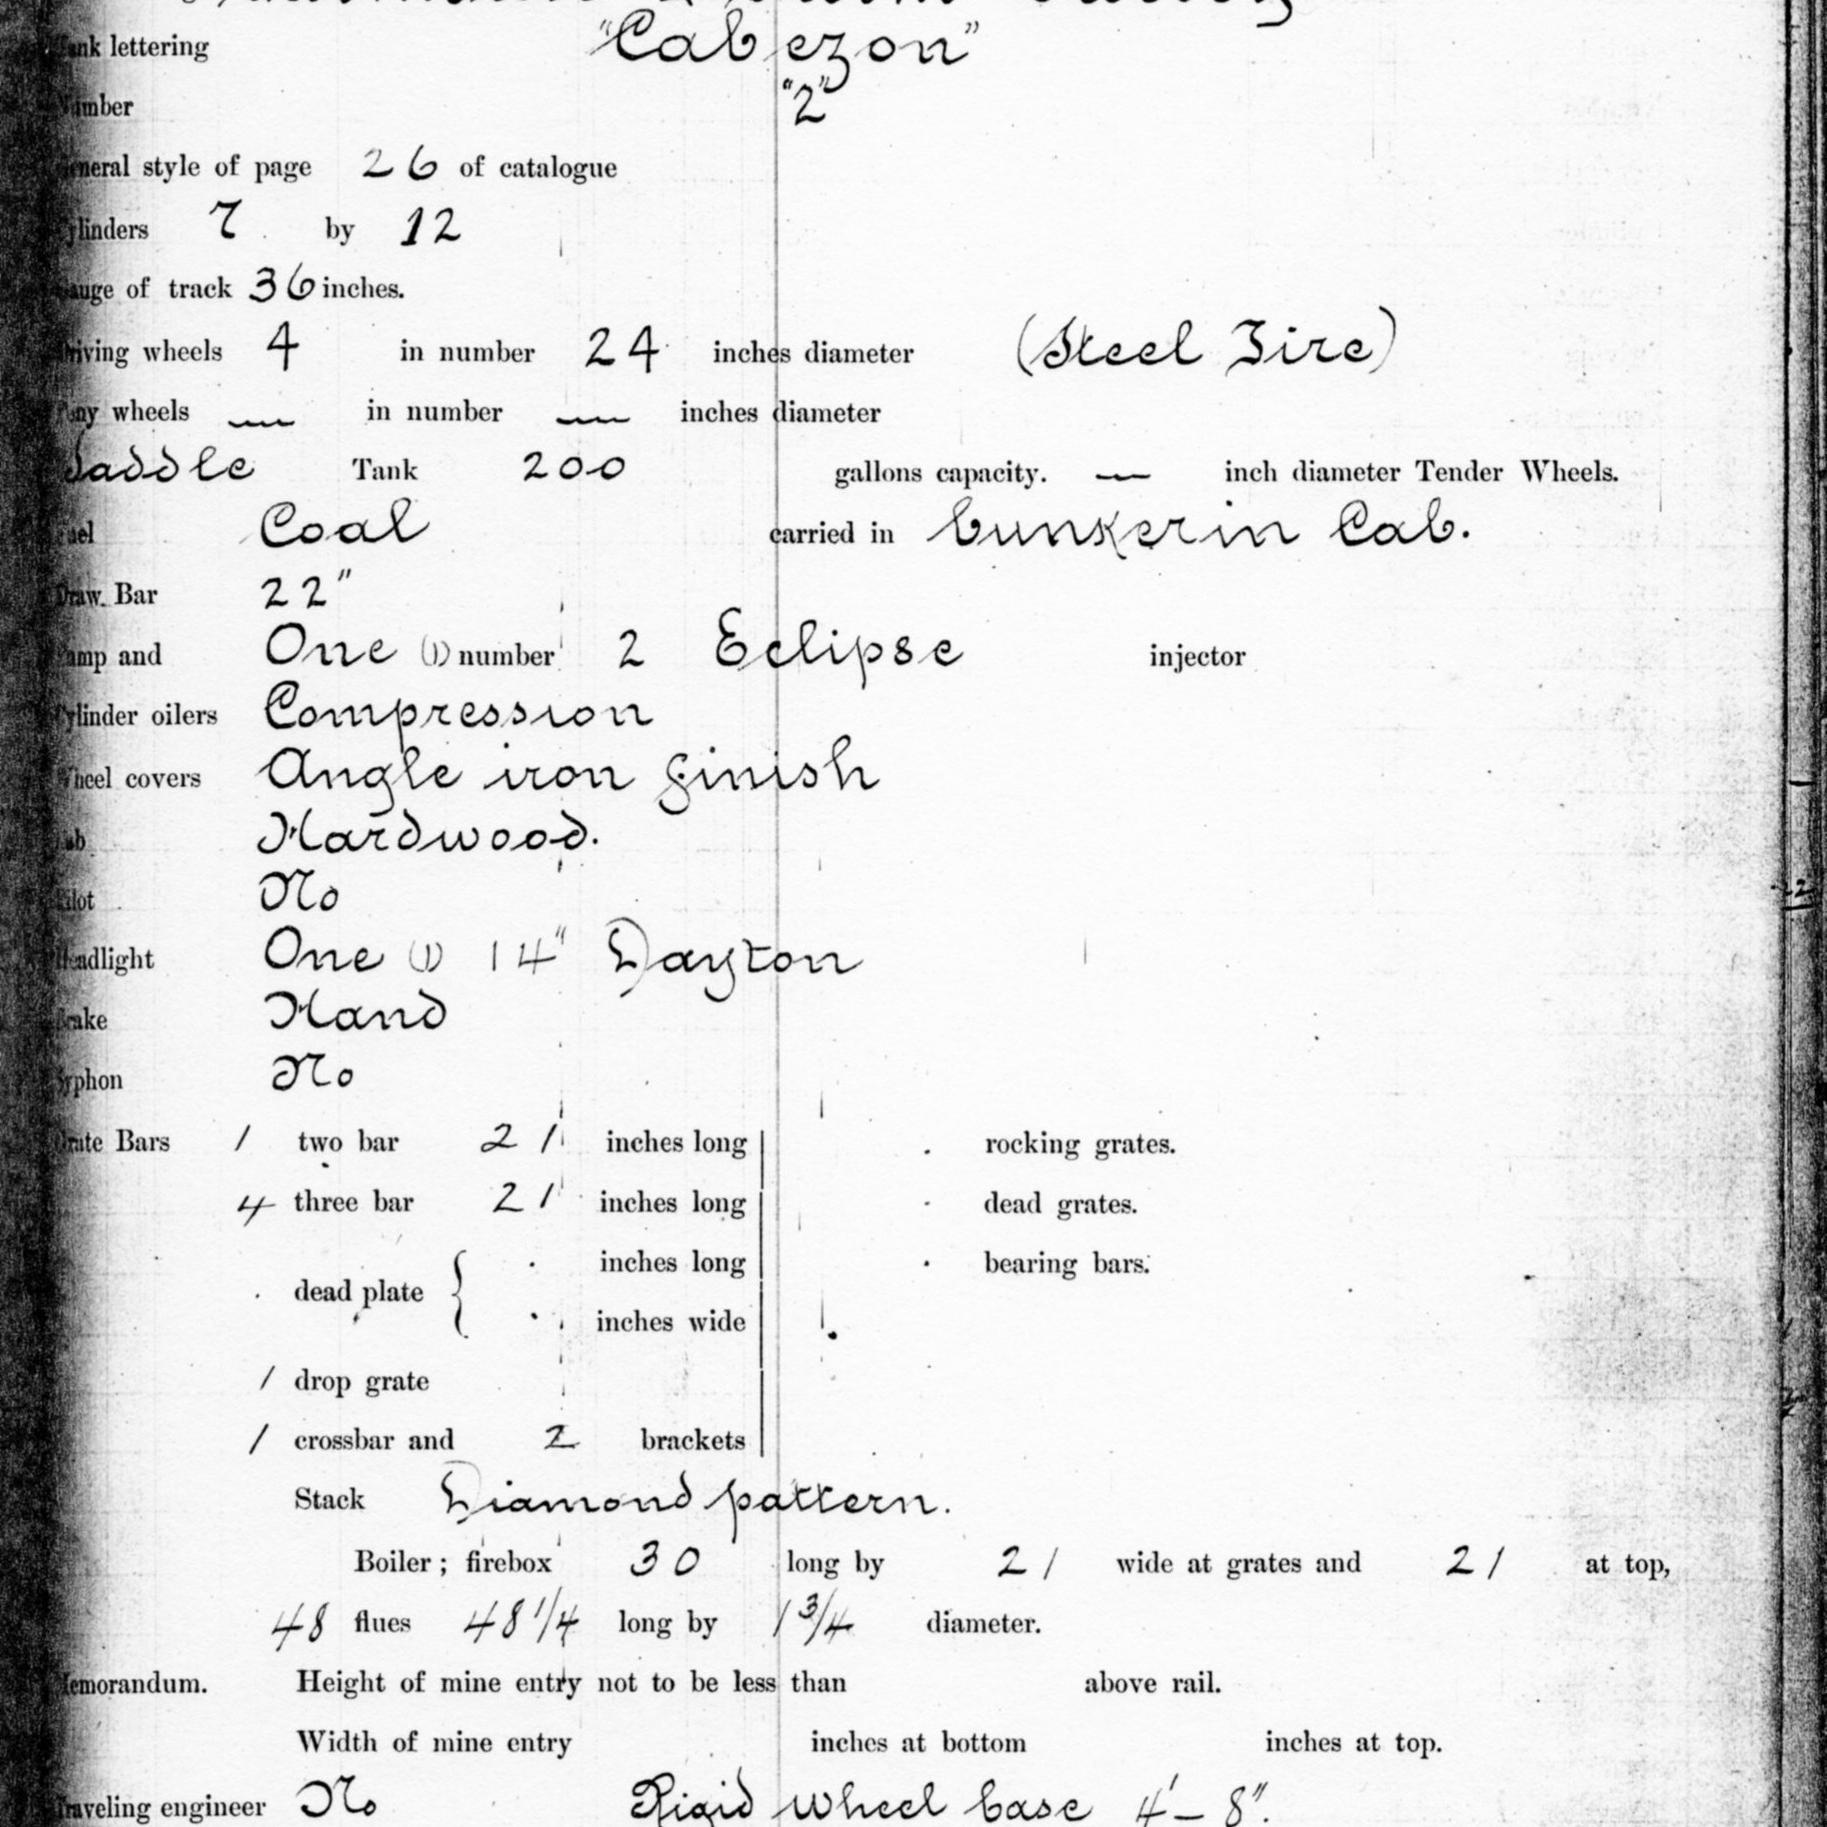 Tank lettering "Cabezon"
Number "2"
General style of page 26 of catalogue
Cylinders 7 by 12
Gauge of track 36 inches.
Driving wheels 4 in number 24 inches diameter (Steel Tire)
Pony wheels — in number — inches diameter
Saddle Tank 200 gallons capacity. — inch diameter Tender Wheels.
Fuel Coal carried in bunker in Cab.
Draw Bar 22"
Pump and One (1) number 2 Eclipse injector
Cylinder oilers Compression
Wheel covers Angle iron finish
Cab Hardwood.
Pilot No
Headlight One (1) 14" Dayton
Brake Hand
Syphon No
Grate Bars 1 two bar 21 inches long rocking grates.
4 three bar 21 inches long dead grates.
inches long bearing bars.
dead plate {
inches wide
1 drop grate
1 crossbar and 2 brackets
Stack Diamond pattern.
Boiler; firebox 30 long by 21 wide at grates and 21 at top,
48 flues 48 1/4 long by 1 3/4 diameter.
Memorandum. Height of mine entry not to be less than above rail.
Width of mine entry inches at bottom inches at top.
Traveling engineer No Rigid wheel base 4'-8".